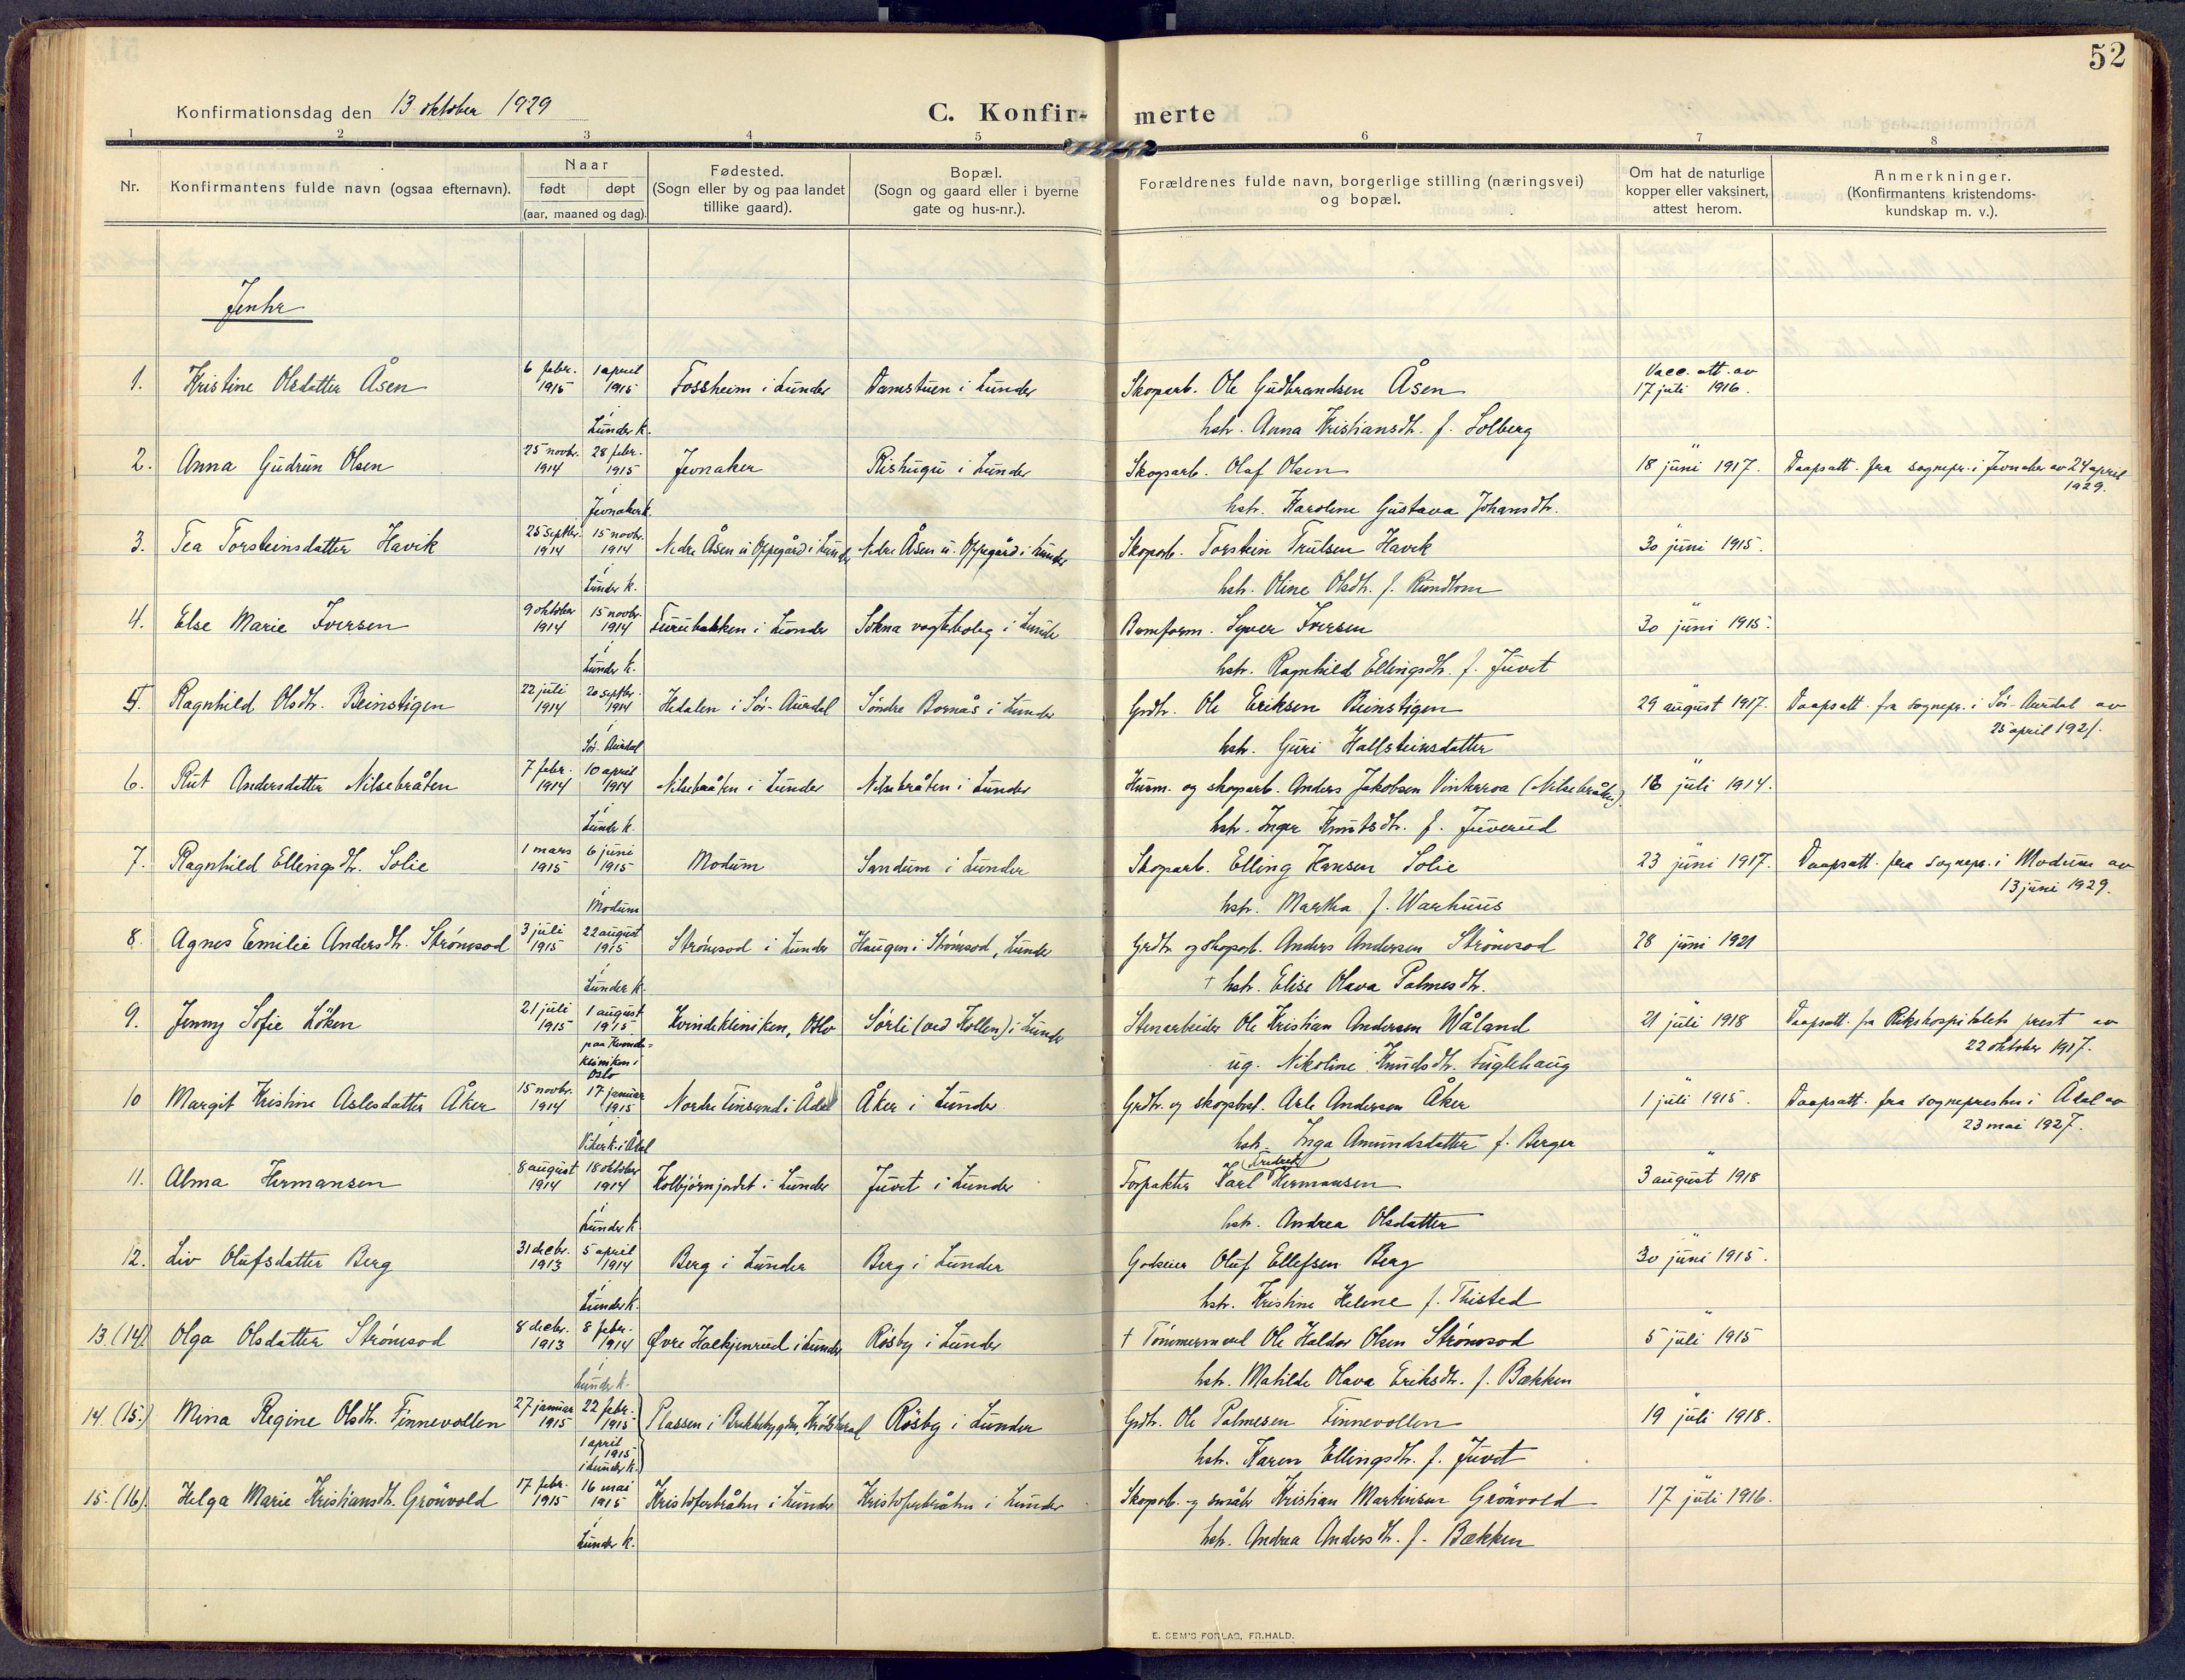 52
Konfirmationsdag den 13. oktober 1929
C. Konfirmerte
1 2 3 4 5 6 7 8
Nr. Konfirmantens fulde navn (ogsaa efternavn). Naar født døpt (aar, maaned og dag). Fødested. (Sogn eller by og paa landet tillike gaard). Bopæl. (Sogn og gaard eller i byerne gate og hus-nr.). Forældrenes fulde navn, borgerlige stilling (næringsvei) og bopæl. Om hat de naturlige kopper eller vaksinert, attest herom. Anmerkninger. (Konfirmantens kristendoms-kundskap m. v.).
Jenter
1. Kristine Olsdatter Åsen 6 febr. 1915 1 april 1915 Fossheim i Lunder Damstuen i Lunder Skogarb. Ole Gudbrandsen Åsen Vacc. att. av 17 juli 1916.
i Lunder K. hstr. Anna Kristiansdtr. f. Solberg
2. Anna Gudrun Olsen 25 novbr. 1914 28 febr. 1915 Jevnaker Rishugu i Lunder Skogsarb. Olaf Olsen " 18 juni 1917. Daapsatt. fra sognepr. i Jevnaker av 24 april 1929.
i Jevnaker k. hstr. Karoline Gustava Johansdtr.
3. Tea Torsteinsdatter Havik 25 septbr. 1914 15 novbr. 1914 Nedre Åsen u. Oppegård i Lunder Nedre Åsen u. Oppegård i Lunder Skogarb. Torstein Trulsen Havik " 30 juni 1915.
i Lunder k. hstr. Oline Olsdtr. f. Rundtom
4. Else Marie Iversen 9 oktober 1914 15 novbr. 1914 Furubakken i Lunder Sokna vogterbolig i Lunder Banform. Syver Iversen " 30 juni 1915.
i Lunder k. hstr. Ragnhild Ellingsdtr. f. Juvet
5. Ragnhild Olsdtr. Beinstigen 22 juli 1914 20 septbr. 1914 Hedalen i Sör-Aurdal Söndre Bornås i Lunder Grdbr. Ole Eriksen Beinstigen " 29 august 1917. Daapsatt. fra sognepr. i Sör-Aurdal av 25 april 1921.
i Sör-Aurdal hstr. Guri Hallsteinsdatter
6. Rut Andersdatter Nilsebråten 7 febr. 1914 10 april 1914 Nilsebråten i Lunder Nilsebråten i Lunder Husm. og skogarb. Anders Jakobsen Vinterroa (Nilsebråten) " 18 juli 1914.
i Lunder k. hstr. Inger Knutsdtr. f. Juverud
7. Ragnhild Ellingsdtr. Solie 1 mars 1915 6 juni 1915 Modum Sandum i Lunder Skogarb. Elling Hansen Solie " 23 juni 1917. Daapsatt. fra sognepr. i Modum av 13 juni 1929.
i Modum hstr. Martha f. Warhuus
8. Agnes Emilie Andersdtr. Strömsod 3 juli 1915 22 august 1915 Strömsod i Lunder Haugen i Strömsod, Lunder Grdbr. og skogarb. Anders Andersen Strömsod 28 juni 1921
i Lunder k. † hstr. Elise Olava Palmesdtr.
9. Jenny Sofie Löken 21 juli 1915 1 august 1915 Kvindekliniken, Oslo Sørli (ved Kollen) i Lunder Stenarbeider Ole Kristian Andersen Wåland " 21 juli 1918 Daapsatt. fra Rikshospitalets prest av 22 oktober 1917.
paa Kvindekliniken i Oslo ug. Nikoline Knudsdtr. Fuglehaug
10 Margit Kristine Aslesdatter Åker 15 novbr. 1914 17 januar 1915 Nordre Finsand i Ådal Åker i Lunder Grdbr. og skogbest. Asle Andersen Åker " 1 juli 1915. Daapsatt. fra sognepresten i Ådal av 23 mai 1927.
i Viker k. i Ådal hstr. Inga Amundsdatter f. Berger
11. Alma Hermansen 8 august 1914 18 oktober 1914 Kolbjörnjordet i Lunder Juvet i Lunder Forpakter Karl Fredrek Hermansen " 3 august 1918
i Lunder k. hstr. Andrea Olsdatter
12. Liv Olufsdatter Berg 31 decbr. 1913 5 april 1914 Berg i Lunder Berg i Lunder Godseier Oluf Ellefsen Berg " 30 juni 1915.
i Lunder k. hstr. Kristine Helene f. Thisted
13. (14). Olga Olsdatter Strömsod 8 decbr. 1913 8 febr. 1914 Øvre Halkjenrud i Lunder Rösby i Lunder † Tömmermerk. Ole Haldor Olsen Strömsod " 5 juli 1915
i Lunder k. hstr. Matilde Olava Eriksdtr. f. Bækken
14. (15.) Mina Regine Olsdtr. Finnevollen 27 januar 1915 22 febr. 1915 Plassen i Brekkebygden, Krödsherad Rösby i Lunder Grdbr. Ole Palmesen Finnevollen " 19 juli 1918.
1 april 1915 i Lunder k. hstr. Karen Ellingsdtr. f. Juvet
15. (16). Helga Marie Kristiansdtr. Grönvold 17 febr. 1915 16 mai 1915 Kristoferbråten i Lunder Kristoferbråten i Lunder Skogarb. og småbr. Kristian Martinsen Grönvold " 17 juli 1916.
i Lunder k. hstr. Andrea Andersdtr. f. Bækken
E. SEM'S FORLAG, FR.HALD.